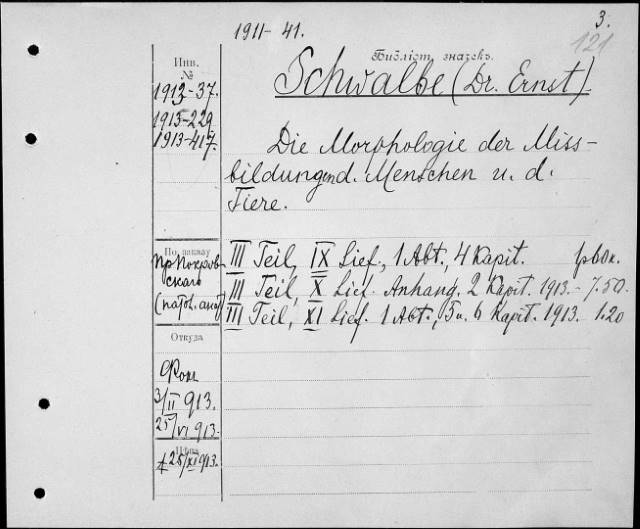 3.
1911-41.
121
Инв.
№
Библіот. значекъ.
Schwalbe (Dr. Ernst).
1912-37.
1913-229
1913-417.
Die Morphologie der Miss-
bildungen d. Menschen u. d.
Tiere.
По заказу
пр Покров-
скаго
(патол. анат)
III Teil, IX Lief., 1 Abt., 4 Kapit. 1р60к.
III Teil, X Lief. Anhang. 2 Kapit. 1913.- 7.50.
III Teil, XI Lief. 1 Abt., 5 u. 6 Kapit. 1913. 1.20
Откуда
3/II 913.
25/VI 913.
Цѣна
25/XI 913.